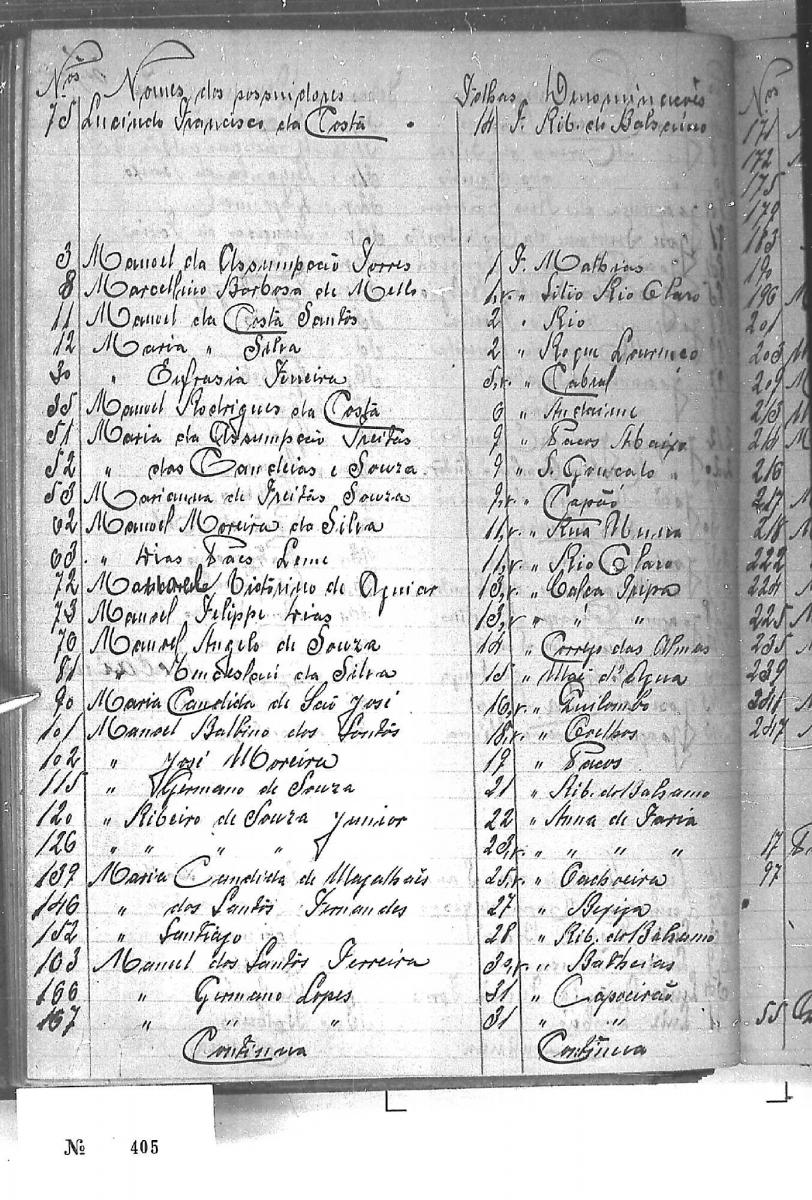 Nos Nomes dos possuidores Folhas Denominações
75 Lucindo Francisco da Costa 14 F. Rib. do Balsamo
3 Manoel da Assumpção Torres 1 F. Mathias
8 Marcellino Barbosa de Mello 1,v. " Sitio Rio Claro
11 Manoel da Costa Santos 2 " Rio
12 Maria " Silva 2 " Roque Lourenço
30 " Eufrasia Ferreira 5,v. " Cabral
35 Manoel Rodrigues da Costa 6 " Andaime
51 Maria da Assumpção Freitas 9 " Pacos Abaixo
52 " das Candeias e Souza 9 " S. Gonçalo "
53 Marianna de Freitas Souza 9,v. " Capão
62 Manoel Moreira da Silva 11,v. " Rua
63 " Dias Paes Leme 11,v. " Rio Claro
72 Manoel Victorino de Aguiar 13,v. " Tripa
73 Manoel Felippe Dias 13,v. " " "
76 Manoel Angelo de Souza 14 " Correjo das Almas
81 da Silva 15 " Mai d'Agua
90 Maria Candida de São José 16,v. " Quilombo
101 Manoel Balbino dos Santos 18,v. " Coelhos
102 " José Moreira 19 " Pacos
115 " Germano de Souza 21 " Rib. do Balsamo
120 " Ribeiro de Souza Junior 22 " Anna de Faria
126 " " " " 23,v. " " " "
139 Maria Candida de Magalhães 25,v. " Cachoeira
146 " dos Santos Fernandes 27 " Bexiga
152 " Santiago 28 " Rib. do Balsamo
163 Manoel dos Santos Ferreira 30,v. " Batheias
166 " Germano Lopes 31 " Capoeirão
167 " " " 31 " "
Continua Continua
Nos
171
172
175
179
183
190
196
201
203
209
213
214
216
217
218
222
224
225
235
239
241
247
17
97
55
№ 405